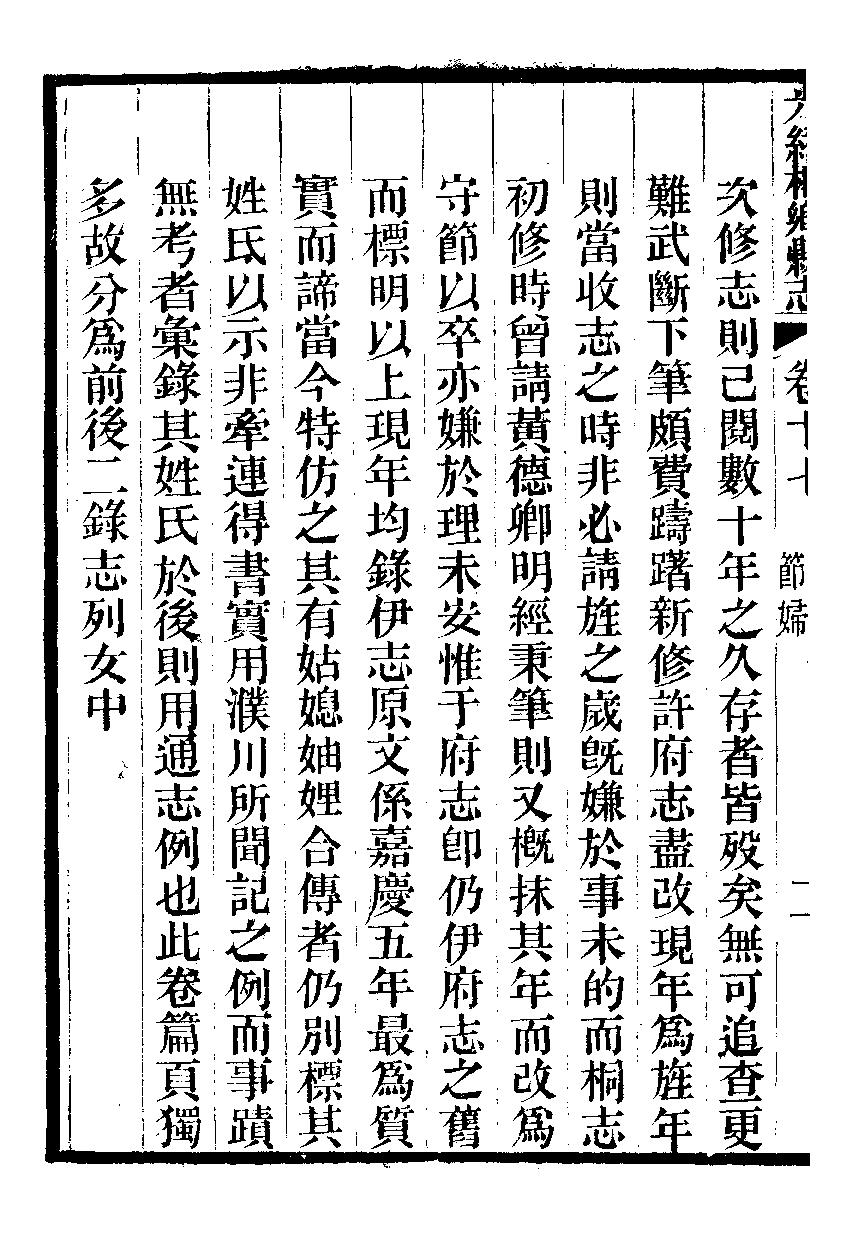 光緒桐鄉縣志 卷十七 節婦 二
次修志則已閱數十年之久存者皆歿矣無可追查更
難武斷下筆頗費躊躇新修許府志盡改現年爲旌年
則當收志之時非必請旌之歲旣嫌於事未的而桐志
初修時曾請黃德卿明經秉筆則又槪抹其年而改爲
守節以卒亦嫌於理未安惟于府志卽仍伊府志之舊
而標明以上現年均錄伊志原文係嘉慶五年最爲質
實而諦當今特仿之其有姑媳妯娌合傳者仍別標其
姓氏以示非牽連得書實用濮川所聞記之例而事蹟
無考者彙錄其姓氏於後則用通志例也此卷篇頁獨
多故分爲前後二錄志列女中